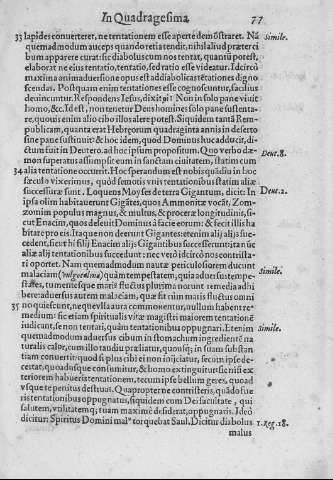 In Quadragesima 77
33 lapides conuerteret, ne tentationem esse aperte demōstraret. Nā Simile.
quemadmodum auceps quando retia tendit, nihil aliud præter ci
bum apparere curat: sic diabolus cum nos tentat, quantū potest,
elaborat ne eius tentatio, tentatio, sed ratio esse videatur. Idcirco
maxima animaduersione opus est ad diabolicas tētationes digno
scendas. Postquam enim tentationes esse cognoscuntur, facilius
deuincuntur. Respondens Iesus, dixit ei: Non in solo pane viuit
homo, &c. Id est, non tenetur Deus homines solo pane sustenta-
re, quouis enim alio cibo illos alere potest. Siquidem tantā Rem-
publicam, quanta erat Hebræorum quadraginta annis in deserto
sine pane sustinuit: & hoc idem, quod Dominus huc adducit, di-
ctum fuit in Deutero. ad hoc ipsum propositum. Quo verbo dæ- Deut. 8.
mon superatus assumpsit eum in sanctam ciuitatem, statim cum
34 alia tentatione occurrit. Hoc sperandum est nobis quādiu in hoc
sæculo viximus, quòd semotis vnis tentationibus statim aliæ
successuræ sunt. Loquens Moyses de terra Gigantum, dicit: In Deut. 2.
ipsa olim habitauerunt Gigātes, quos Ammonitæ vocāt, Zom-
zomim populus magnus, & multus, & proceræ longitudinis, si-
cut Enacim, quos deleuit Dominus à facie eorum: & fecit illis ha
bitare pro eis. Itaque non deerunt Gigantes: etenim alij alijs suc-
cedent, sicut hi filij Enacim alijs Gigantibus successerunt: ita nūc
aliæ alij tentationibus succedunt: nec verò idcircò nos contrista-
ri oportet. Nam quemadmodum nautæ periculosiorem ducunt
malaciam (vulgo calma) quàm tempestatem, quia aduersus tempe- Simile.
states, tumentesque maris fluctus plurima norunt remedia adhi
bere: aduersus autem malaciam, quæ fit cùm maris fluctus omni
35 no quiescunt, neque vlla aura commouentur, nullum habent re-
medium: sic etiam spiritualis vitæ magistri maiorem tentationē
iudicant, se non tentari, quàm tentationibus oppugnari. Etenim Simile.
quemadmodum aduersus cibum in stomachum ingredientē na
turalis calor, cum illo tandiu præliatur, quousq; in suam substan
tiam conuertit: quod si plus cibi ei non inijciatur, secum ipse de-
certat, quoadusque consumitur, & homo extinguitur: sic nisi ex
teriorem habueris tentationem, tecum ipse bellum geres, quoad
vsque te penitus destruas. Quapropter ne contristeris, quādo fue
ris tentationibus oppugnatus, siquidem cum Dei facultate, qui
salutem, vtilitatemq; tuam maximè desiderat, oppugnaris. Ideò
dicitur: Spiritus Domini malꝰ torquebat Saul. Dicitur diabolus 1. Reg. 18.
malus